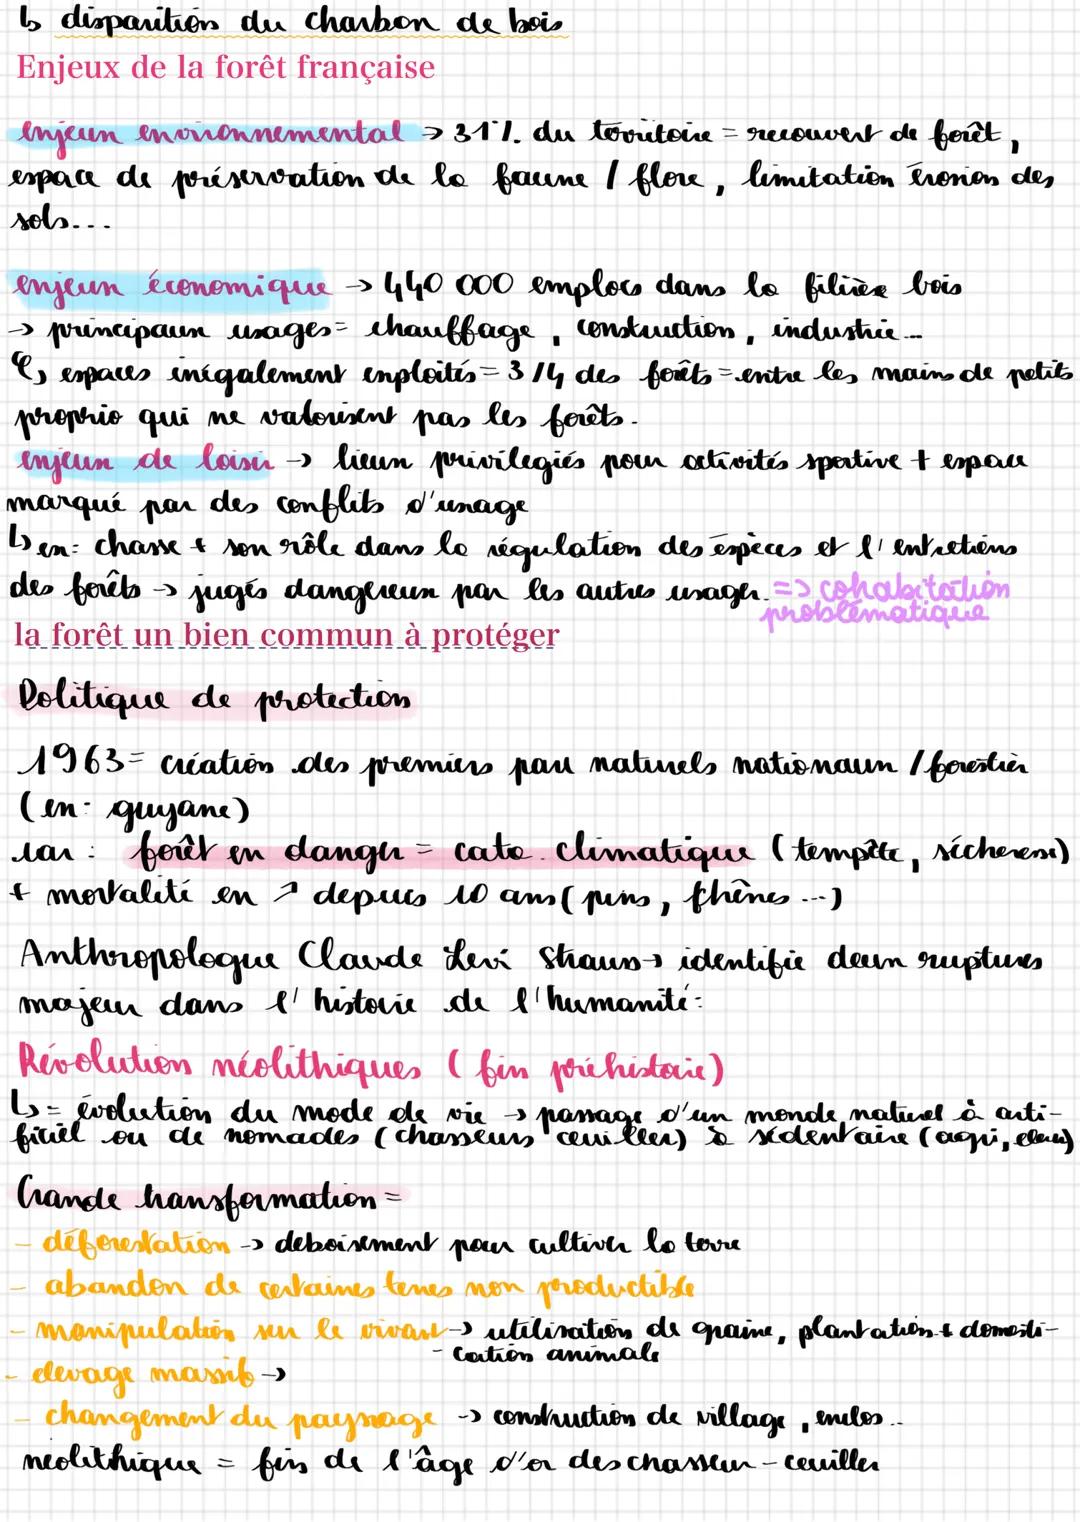 ↳ disparition du charbon de bois
Enjeux de la forêt française
enjeux environnemental → 31% du territoire = recouvert de forêt,
espace de préservation de la faune / flore, limitation érosion des
sols...
enjeux économique → 440 000 emplois dans la filière bois
→ principaux usages = chauffage, construction, industrie...
↳ espaces inégalement exploités = 3/4 des forêts = entre les mains de petits
proprio qui ne valorisent pas les forêts.
enjeux de loisir → lieux privilégiés pour activités sportive + espace
marqué par des conflits d'usage
↳ ex: chasse + son rôle dans la régulation des espèces et l'entretiens
des forêts → jugés dangereux par les autres usager. => cohabitation
problématique
la forêt un bien commun à protéger
Politique de protection
1963 = création des premiers parc naturels nationaux / forestier
(ex: guyane)
car : forêt en danger = cata. climatique (tempête, sécheresse)
+ mortalité en ↗ depuis 10 ans (pins, fhênes ...)
Anthropologue Claude Levi Strauss → identifie deux ruptures
majeur dans l'histoire de l'humanité:
Révolution néolithiques (fin préhistoire)
↳ = évolution du mode de vie → passage d'un monde naturel à arti-
ficiel ou de nomades (chasseurs cueilleur) à sédentaire (agri, élev)
Grande transformation =
- déforestation → deboisement pour cultiver la terre
- abandon de certaines terres non productible
- manipulation sur le vivant → utilisation de graine, plantation + domesti-
- cation animale
- élevage massif →
- changement du paysage → construction de village, enclos..
néolithique = fin de l'âge d'or des chasseur - ceuiller